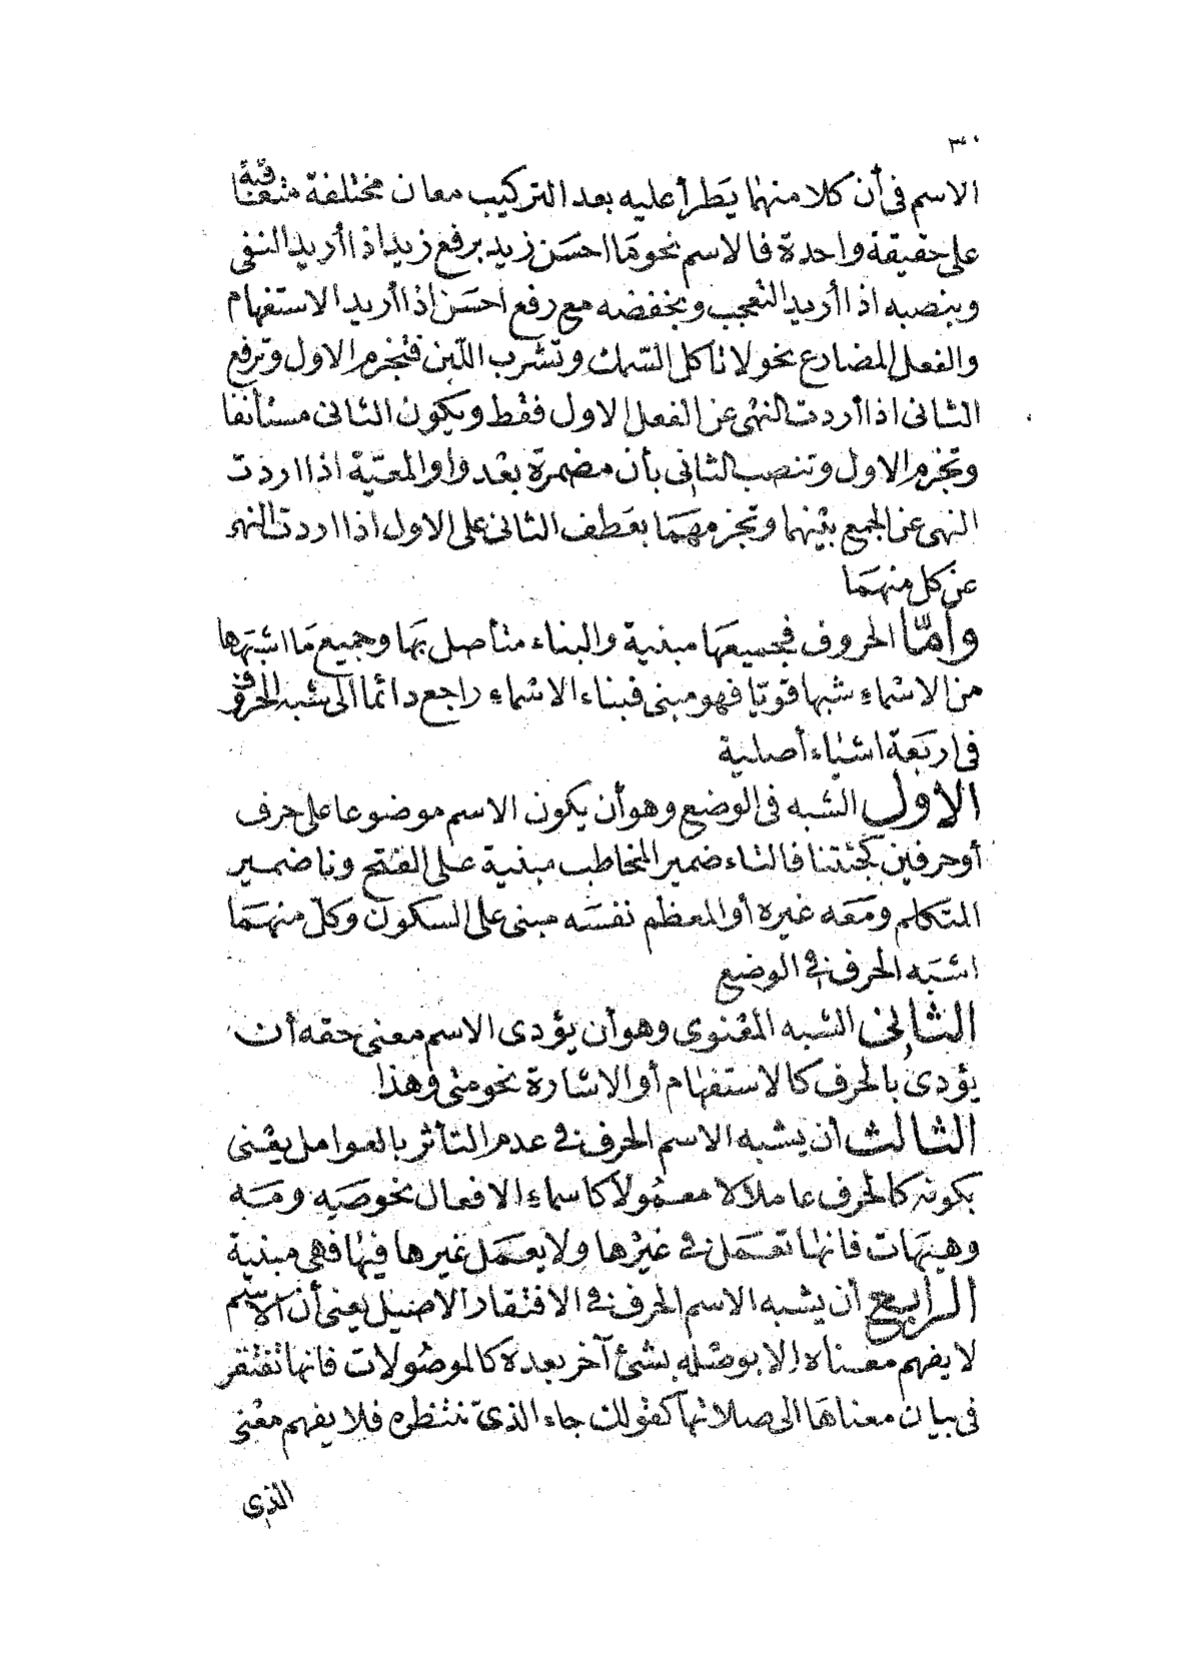 ٣٠
الاسم فى أن كلا منهما يَطرأ عليه بعد التركيب معان مختلفة متعاقبة
على حقيقة واحدة فالاسم نحو مَا احسَن زيد برفع زيد اذا أريد النفى
وبنصبه اذا أريد التعجب وبخفضه مع رفع احسَن اذا أريد الاستفهام
والفعل المضارع نحو لا تأكل السّمك وتشرب اللّبن فتجزم الاول وترفع
الثانى اذا أردت النهى عن الفعل الاول فقط ويكون الثانى مستأنفا
وتجزم الاول وتنصب الثانى بأن مضمرة بعْد واو المعيّة اذا اردت
النهى عن الجمع بينهما وتجزمهمَا بعَطف الثانى على الاول اذا اردت النهى
عن كل منهمَا
وأمّا الحروف فجميعهَا مبنية والبناء متأصل بهَا وجميع مَا اشبهها
من الاسْماءِ شبها قويّا فهو مبنى فبناء الاسْماءِ راجع دائما الى شبه الحروف
فى اربَعة اشياء أصلية
الاول الشبه فى الوضع وهو أن يكون الاسم موضوعا على حرف
أو حرفين كجئتنا فالتاء ضمير المخاطب مبنية على الفتح ونا ضمير
المتكلم ومَعه غيره أو المعظم نفسَه مبنى على السكون وكلّ منهمَا
اشبَه الحرف فى الوضع
الثانى الشبه المعْنوى وهو أن يؤدى الاسم معنى حقه أن
يؤدىُ بالحرف كالاستفهام أو الاشارة نحو متى وهذا
الثالث أن يشبه الاسم الحرف فى عدم التأثر بالعوامل يعْنى
بكونه كالحرف عاملا لا معمُولا كاسماءِ الافعال نحو صَه ومَه
وهيهَات فانها تعَمل فى غيرْها ولا يعَمل غيرها فيها فهى مبنية
الرابع أن يشبه الاسم الحرف فى الافتقار الاصيل يعنى أن الاسْم
لا يفهم معناه إلا بوصْله بشئ آخر بعده كالموصُولات فانها تفتقر
فى بيان معناهَا الى صلاتها كقولك جاء الذىّ ننتظره فلا يفهم معْنى
الذى